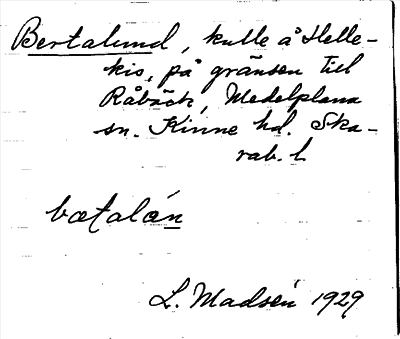 Bertalund, kulle å Helle-
kis, på gränsen till
Råbäck, Medelplana
sn. Kinne hd. Ska-
rab. l.
bætalán
L. Madsén 1929